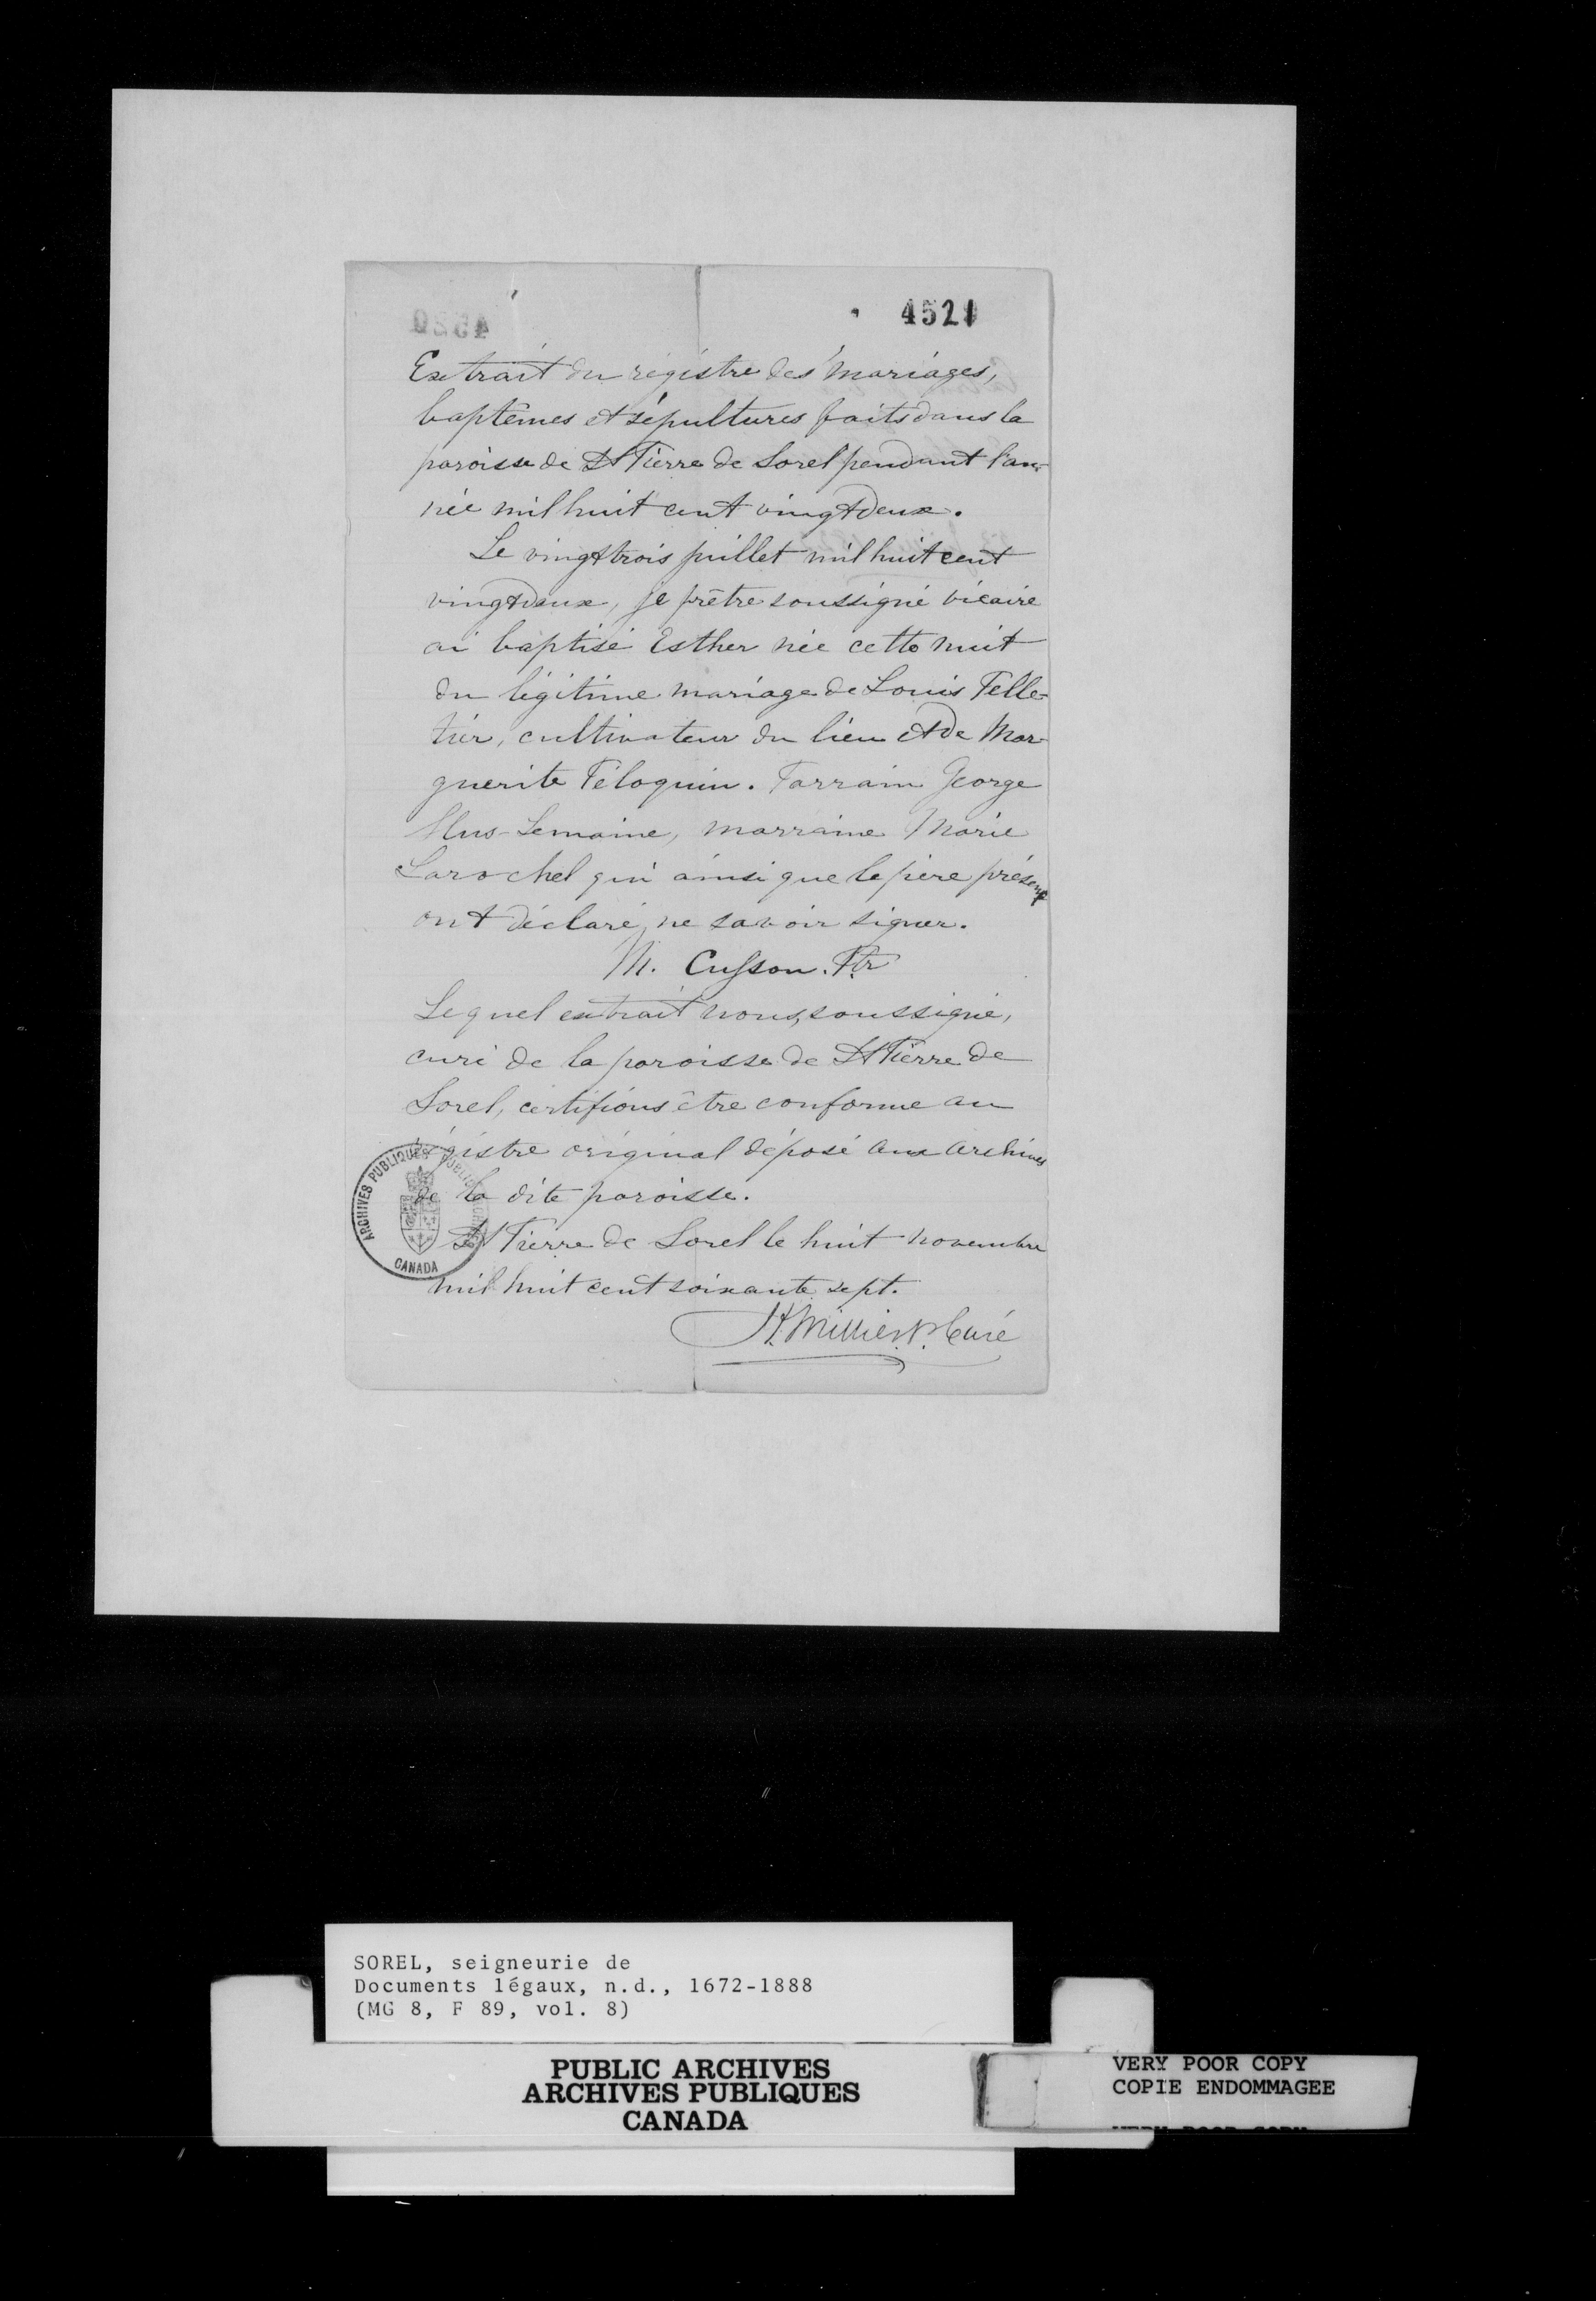 4521
Extrait du régistre des mariages,
baptêmes et sépultures faits dans la
paroisse de St Pierre de Sorel pendant l'an-
née mil huit cent vingt deux.
Le vingt trois juillet mil huit cent
vingt deux, je prêtre soussigné vicaire
ai baptisé Esther née cette nuit
du légitime mariage de Louis Pelle-
tier, cultivateur du lieu et de Mar-
guerite Péloquin. Parrain George
Lemaine, marraine Marie
Larochel qui ainsi que le père présent
ont déclaré ne savoir signer.
M. Cusson. Ptr
Lequel extrait nous, soussigné,
curé de la paroisse de St Pierre de
Sorel, certifions être conforme au
régistre original déposé aux archives
de la dite paroisse.
St Pierre de Sorel le huit novembre
mil huit cent soixante sept.
H. Millier. P. Curé
ARCHIVES PUBLIQUES PUBLIC ARCHIVES
CANADA
SOREL, seigneurie de
Documents légaux, n.d., 1672-1888
(MG 8, F 89, vol. 8)
PUBLIC ARCHIVES
ARCHIVES PUBLIQUES
CANADA
VERY POOR COPY
COPIE ENDOMMAGEE
VERY POOR COPY